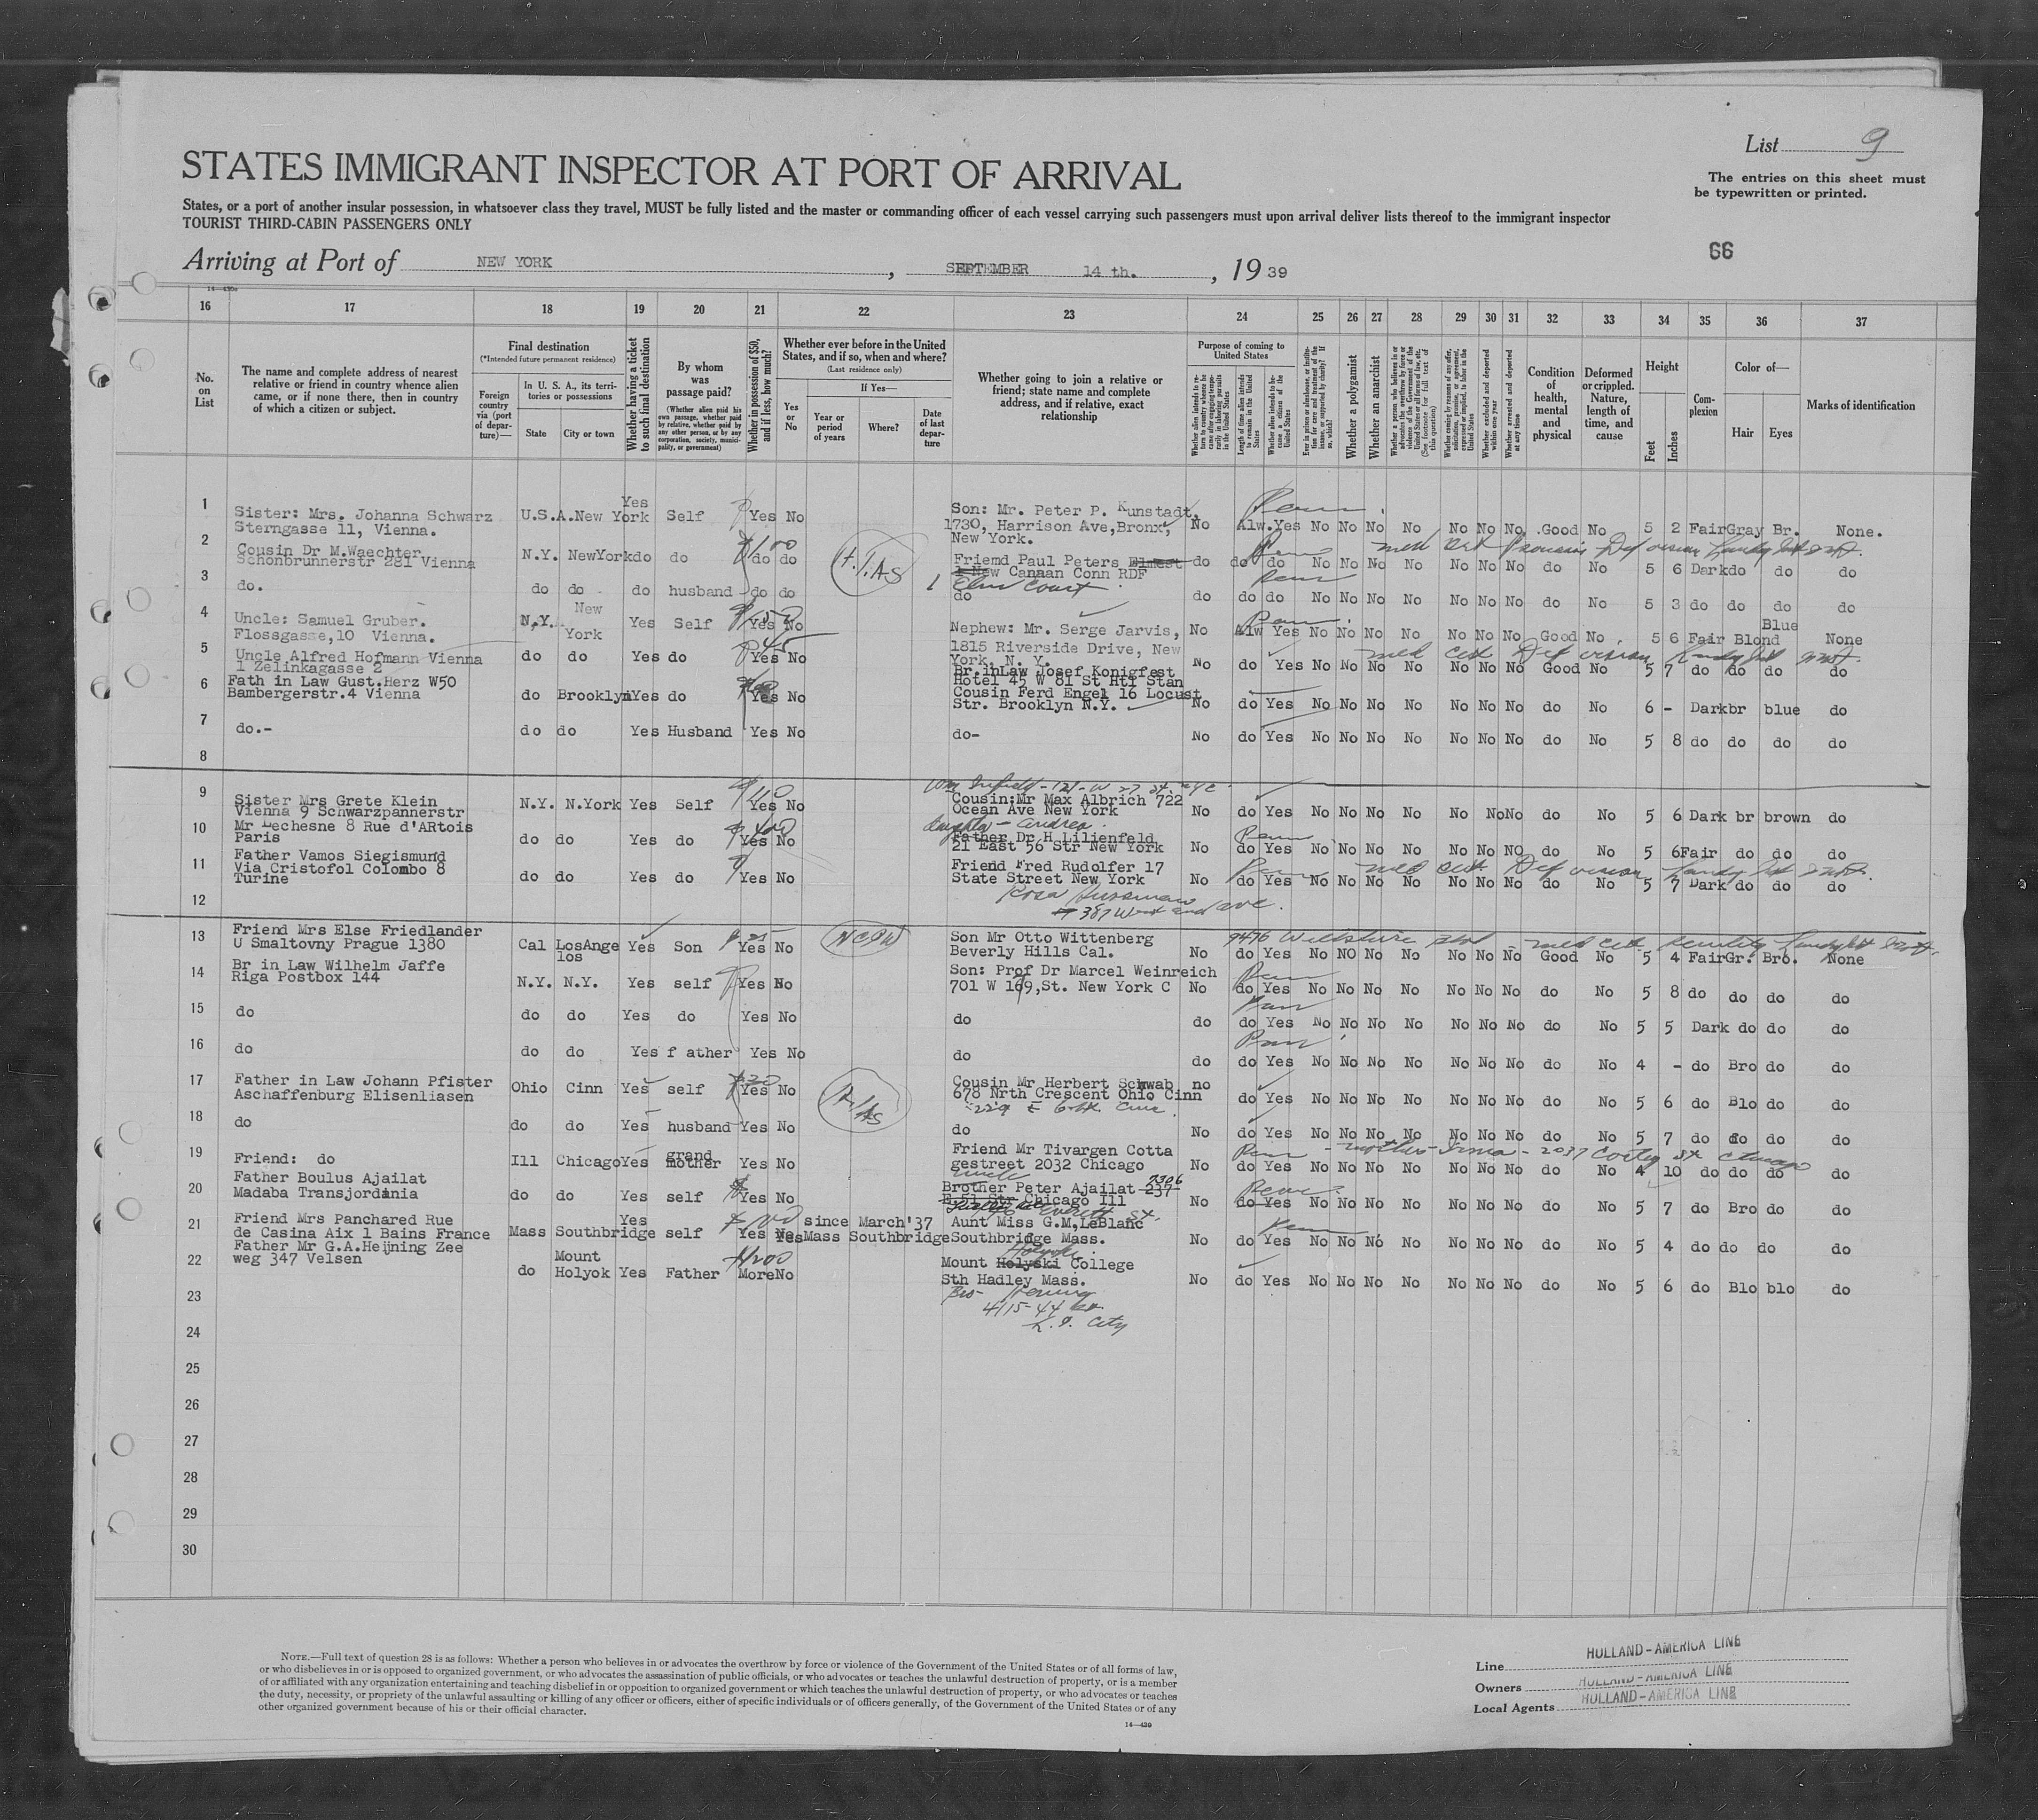 List 9
STATES IMMIGRANT INSPECTOR AT PORT OF ARRIVAL
The entries on this sheet must
be typewritten or printed.
States, or a port of another insular possession, in whatsoever class they travel, MUST be fully listed and the master or commanding officer of each vessel carrying such passengers must upon arrival deliver lists thereof to the immigrant inspector
TOURIST THIRD-CABIN PASSENGERS ONLY
66
Arriving at Port of NEW YORK, SEPTEMBER 14 th., 1939
16 17 18 19 20 21 22 23 24 25 26 27 28 29 30 31 32 33 34 35 36 37
No. on List
The name and complete address of nearest relative or friend in country whence alien came, or if none there, then in country of which a citizen or subject.
Final destination
(*Intended future permanent residence)
Foreign country via (port of departure)—
In U. S. A., its territories or possessions
State City or town
Whether having a ticket to such final destination
By whom was passage paid?
(Whether alien paid his own passage, whether paid by relative, whether paid by any other person, or by any corporation, society, municipality, or government)
Whether in possession of $50, and if less, how much?
Whether ever before in the United States, and if so, when and where?
(Last residence only)
Yes or No
If Yes—
Year or period of years
Where?
Date of last departure
Whether going to join a relative or friend; state name and complete address, and if relative, exact relationship
Purpose of coming to United States
Whether alien intends to return to country whence he came after engaging temporarily in laboring pursuits in the United States
Length of time alien intends to remain in the United States
Whether alien intends to become a citizen of the United States
Whether a polygamist
Whether an anarchist
Whether excluded and deported within one year
Whether arrested and deported at any time
Condition of health, mental and physical
Deformed or crippled. Nature, length of time, and cause
Height
Feet Inches
Complexion
Color of—
Hair Eyes
Marks of identification
1 Sister: Mrs. Johanna Schwarz U.S.A. New York Yes Self Yes No Son: Mr. Peter P. Kunstadt, No Alw. Yes No No No No No No No Good No 5 2 Fair Gray Br. None.
Sterngasse 11, Vienna. 1730, Harrison Ave, Bronx,
New York.
2 Cousin Dr M.Waechter N.Y. NewYork do do do do Friend Paul Peters do do do No No No No No No No do No 5 6 Dark do do do
Schonbrunnerstr 281 Vienna New Canaan Conn RDF
Elm Court
HIAS
3 do. do do do husband do do do do do do No No No No No No No do No 5 3 do do do do
4 Uncle: Samuel Gruber. N.Y. New York Yes Self Yes No Nephew: Mr. Serge Jarvis, No Alw Yes No No No No No No No Good No 5 6 Fair Blond Blue None
Flossgasse,10 Vienna. 1815 Riverside Drive, New
York, N. Y.
5 Uncle Alfred Hofmann Vienna do do Yes do Yes No Br.inLaw Josef Konigfest No do Yes No No No No No No No Good No 5 7 do do do do
1 Zelinkagasse 2 Hotel 45 W 81 St Htl Stan
6 Fath in Law Gust.Herz W50 do Brooklyn Yes do Yes No Cousin Ferd Engel 16 Locust No do Yes No No No No No No No do No 6 - Dark br blue do
Bambergerstr.4 Vienna Str. Brooklyn N.Y.
7 do.- do do Yes Husband Yes No do- No do Yes No No No No No No No do No 5 8 do do do do
8
9 Sister Mrs Grete Klein N.Y. N.York Yes Self Yes No Cousin:Mr Max Albrich 722 No do Yes No No No No No No No do No 5 6 Dark br brown do
Vienna 9 Schwarzpannerstr Ocean Ave New York
10 Mr Dechesne 8 Rue d'ARtois do do Yes do Yes No Father Dr H Lilienfeld No do Yes No No No No No No NO do No 5 6 Fair do do do
Paris 21 East 56 Str New York
11 Father Vamos Siegismund do do Yes do Yes No Friend Fred Rudolfer 17 No do Yes No No No No No No No do No 5 7 Dark do do do
Via Cristofol Colombo 8 State Street New York
Turine
12
13 Friend Mrs Else Friedlander Cal LosAnge Yes Son Yes No Son Mr Otto Wittenberg No do Yes No NO No No No No No Good No 5 4 Fair Gr. Bro. None
U Smaltovny Prague 1380 los Beverly Hills Cal.
14 Br in Law Wilhelm Jaffe N.Y. N.Y. Yes self Yes No Son: Prof Dr Marcel Weinreich No do Yes No No No No No No No do No 5 8 do do do do
Riga Postbox 144 701 W 169,St. New York C
15 do do do Yes do Yes No do do do Yes No No No No No No No do No 5 5 Dark do do do
16 do do do Yes f ather Yes No do do do Yes No No No No No No No do No 4 - do Bro do do
17 Father in Law Johann Pfister Ohio Cinn Yes self Yes No Cousin Mr Herbert Schwab no do Yes No No No No No No No do No 5 6 do Blo do do
Aschaffenburg Elisenliasen 678 Nrth Crescent Ohio Cinn
HIAS
18 do do do Yes husband Yes No do No do Yes No No No No No No No do No 5 7 do do do do
19 Friend: do Ill Chicago Yes grand mother Yes No Friend Mr Tivargen Cotta No do Yes No No No No No No No do No 4 10 do do do do
gestreet 2032 Chicago
20 Father Boulus Ajailat do do Yes self Yes No Brother Peter Ajailat 237 No do Yes No No No No No No No do No 5 7 do Bro do do
Madaba Transjordania E 51 Str Chicago Ill
21 Friend Mrs Panchared Rue Mass Southbridge Yes self Yes Yes since March'37 Mass Southbridge Aunt Miss G.M,LeBlanc No do Yes No No No No No No No do No 5 4 do do do do
de Casina Aix l Bains France Southbridge Mass.
22 Father Mr G.A.Heijning Zee do Mount Holyok Yes Father More No Mount Holyski College No do Yes No No No No No No No do No 5 6 do Blo blo do
weg 347 Velsen Sth Hadley Mass.
23
24
25
26
27
28
29
30
NOTE.—Full text of question 28 is as follows: Whether a person who believes in or advocates the overthrow by force or violence of the Government of the United States or of all forms of law,
or who disbelieves in or is opposed to organized government, or who advocates the assassination of public officials, or who advocates or teaches the unlawful destruction of property, or is a member
of or affiliated with any organization entertaining and teaching disbelief in or opposition to organized government or which teaches the unlawful destruction of property, or who advocates or teaches
the duty, necessity, or propriety of the unlawful assaulting or killing of any officer or officers, either of specific individuals or of officers generally, of the Government of the United States or of any
other organized government because of his or their official character.
14—430
Line HOLLAND-AMERICA LINE
Owners HOLLAND-AMERICA LINE
Local Agents HOLLAND-AMERICA LINE